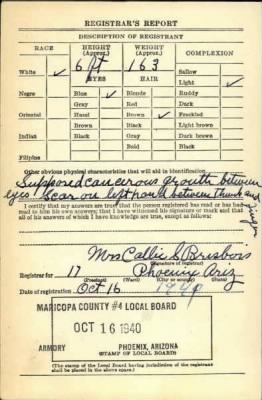 REGISTRAR'S REPORT
DESCRIPTION OF REGISTRANT
RACE HEIGHT (Approx.) WEIGHT (Approx.) COMPLEXION
6 ft 163
White ✓ EYES HAIR Sallow
Light ✓
Negro Blue ✓ Blonde Ruddy
Gray Red Dark
Oriental Hazel Brown ✓ Freckled
Brown Black Light brown
Indian Black Gray Dark brown
Bald Black
Filipino
Other obvious physical characteristics that will aid in identification
Supposed cancerous growth between
eyes Scar on left hand between thumb and
finger
I certify that my answers are true; that the person registered has read or has had
read to him his own answers; that I have witnessed his signature or mark and that
all of his answers of which I have knowledge are true, except as follows:
Mrs Callie S
(Signature of registrar)
Registrar for 17 Phoenix Ariz
(Precinct) (Ward) (City or county) (State)
Date of registration Oct 16 1940
MARICOPA COUNTY #4 LOCAL BOARD
OCT 16 1940
ARMORY PHOENIX, ARIZONA
(STAMP OF LOCAL BOARD)
(The stamp of the Local Board having jurisdiction of the registrant
shall be placed in the above space.)